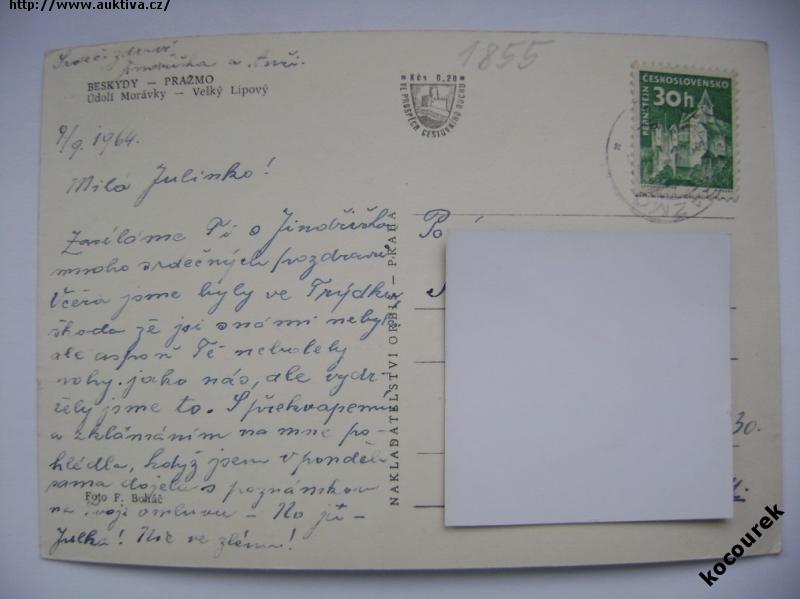 http://www.auktiva.cz/
Srdečně zdraví
Jindřiška a
1855
BESKYDY — PRAŽMO
Údolí Morávky — Velký Lipový
Kčs 0,20
VE PROSPĚCH CESTOVNÍHO RUCHU
ČESKOSLOVENSKO
30h
PERNŠTEJN
9/9. 1964.
Milá Julinko!
Zasíláme Ti s Jindřiškou
mnoho srdečných pozdravů
Včera jsme byly ve
škoda že jsi s námi nebyla
ale aspoň Tě nebolely
nohy. jako nás, ale vydr-
žely jsme to. S překvapením
a zklamáním na mne po-
hlédla, když jsem v pondělí
sama dojela s poznámkou
na tvoji omluvu – No jo –
Julka! Nic ve zlém!
Foto F. Boháč
NAKLADATELSTVÍ ORBIS — PRAHA
30.
kocourek